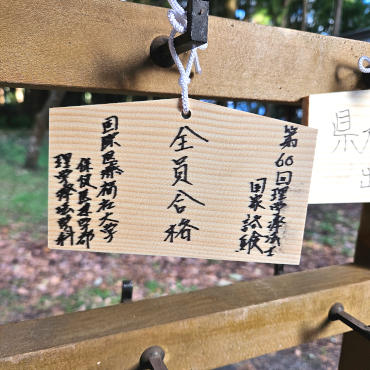 第60回理学療法士
国家試験
全員合格
国際医療福祉大学
保健医療学部
理学療法学科
県